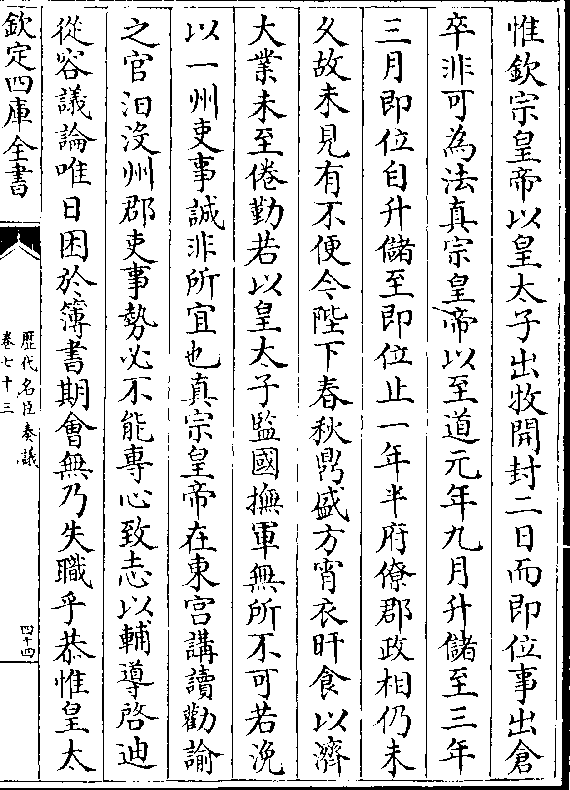 惟欽宗皇帝以皇太子出牧開封二日而即位事出倉
卒非可為法真宗皇帝以至道元年九月升儲至三年
三月即位自升儲至即位止一年半府僚郡政相仍未
乆故未見有不便今陛下春秋鼎盛方宵衣旰食以濟
大業未至倦勤若以皇太子監國撫軍無所不可若浼
以一州吏事誠非所宜也真宗皇帝在東宮講讀勸諭
之官汨沒州郡吏事勢必不能專心致志以輔導啓迪
從容議論唯日困於簿書期會無乃失職乎恭惟皇太
欽定四庫全書
歷代名臣奏議
卷七十三
四十四